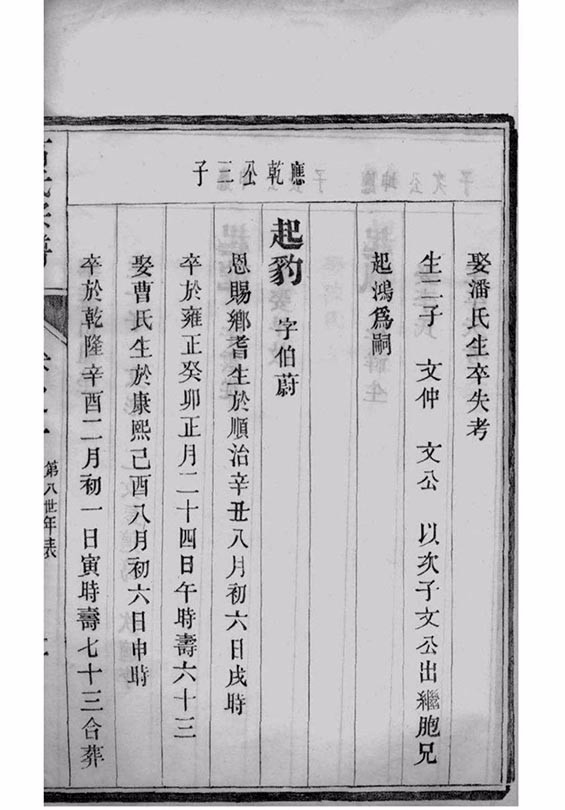 娶潘氏生卒失考
生二子 文仲 文公 以次子文公出繼胞兄
起鴻爲嗣
應乾公三子
起豹 字伯蔚
恩賜鄉耆生於順治辛丑八月初六日戌時
卒於雍正癸卯正月二十四日午時壽六十三
娶曹氏生於康熙己酉八月初六日申時
卒於乾隆辛酉二月初一日寅時壽七十三合葬
第八世年表